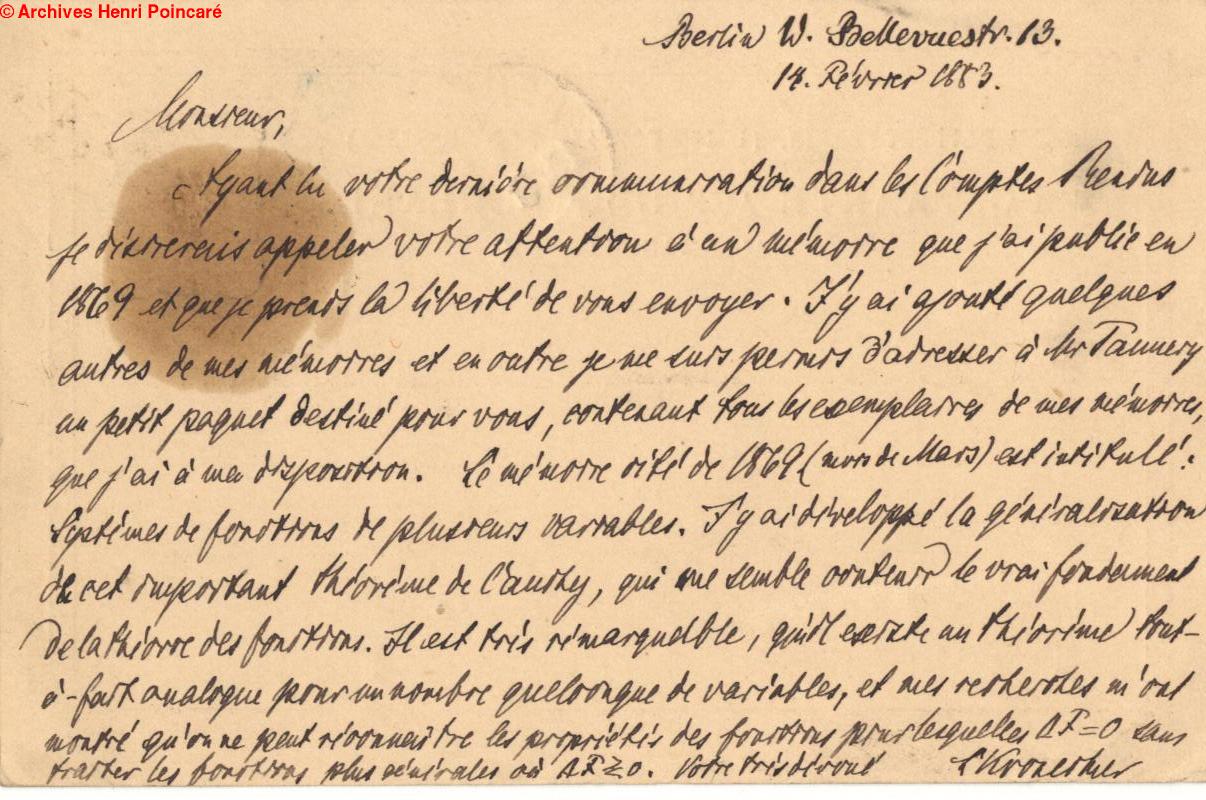 © Archives Henri Poincaré
Berlin W. Bellevuestr. 13.
18. Février 1883.
Monsieur,
Ayant lu votre dernière communication dans les Comptes Rendus
je désirerais appeler votre attention à un mémoire que j'ai publié en
1869 et que je prends la liberté de vous envoyer. J'y ai ajouté quelques
autres de mes mémoires et en outre je me suis permis d'adresser à Mr Tannery
un petit paquet destiné pour vous, contenant tous les exemplaires de mes mémoires,
que j'ai à ma disposition. Le mémoire cité de 1869 (mois de Mars) est intitulé:
Systèmes de fonctions de plusieurs variables. J'y ai développé la généralisation
de cet important théorème de Cauchy, qui me semble contenir le vrai fondement
de la théorie des fonctions. Il est très rémarquable, qu'il existe un théorème tout-
à-fait analogue pour un nombre quelconque de variables, et mes recherches m'ont
montré qu'on ne peut réconnaître les propriétés des fonctions pour lesquelles ΔF=0 sans
traiter les fonctions plus générales où ΔF≷0. Votre très dévoué LKronecker